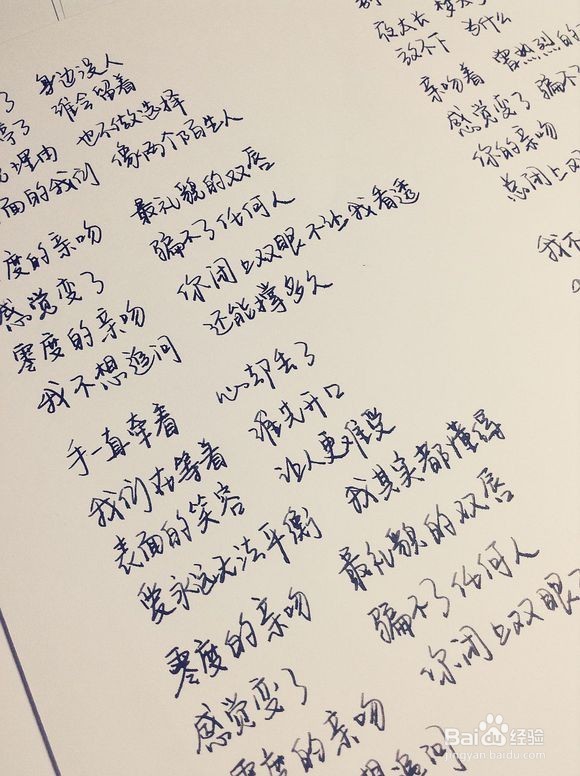 了 身边没人
了 谁会留着
理由 也不做选择
面的我们 像两个陌生人
度的亲吻 最礼貌的双唇
感觉变了 骗不了任何人
零度的亲吻 你闭上双眼不让我看透
我不想追问 还能撑多久
手一直牵着 心却丢了
我们在等着 谁先开口
表面的笑容 让人更难受
爱永远无法平衡 我其实都懂得
零度的亲吻 最礼貌的双唇
感觉变了 骗不了任何人
零度的亲吻 你闭上双眼不
想追问
夜太长 梦太
放不下 为什么
亲吻着 曾热烈的
感觉变了 骗不
你的亲吻
总闭上双
我不
Baidu经验
jingyan.baidu.com